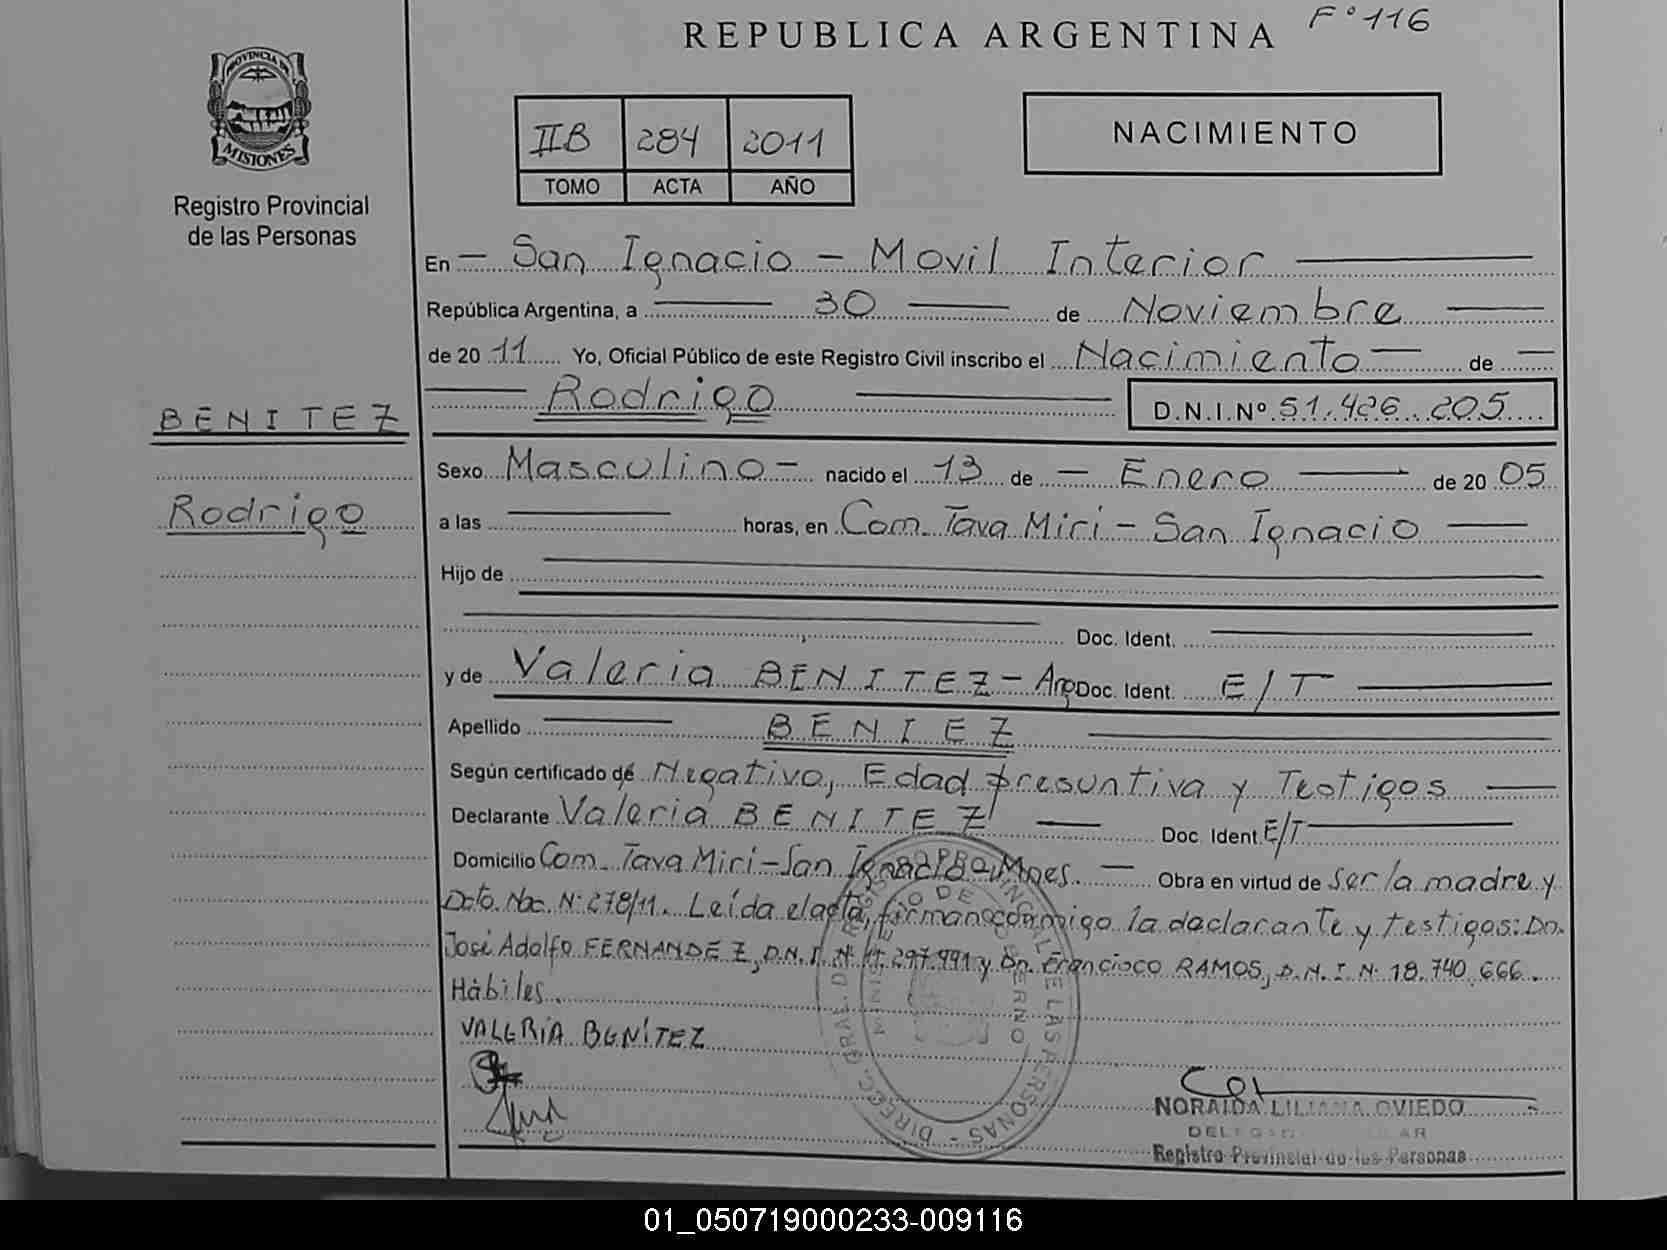 REPUBLICA ARGENTINA F° 116
PROVINCIA DE
MISIONES
Registro Provincial
de las Personas
IIB 284 2011
TOMO ACTA AÑO
NACIMIENTO
En - San Ignacio - Movil Interior
República Argentina, a 30 de Noviembre
de 20 11 Yo, Oficial Público de este Registro Civil inscribo el Nacimiento de
Rodrigo D.N.I.Nº 51.426.205
BENITEZ
Rodrigo
Sexo Masculino - nacido el 13 de - Enero de 20 05
a las horas, en Com. Tava Miri - San Ignacio
Hijo de
Doc. Ident.
y de Valeria BENITEZ - Arg. Doc. Ident. E/T
Apellido BENIEZ
Según certificado de Negativo, Edad presuntiva y Testigos
Declarante Valeria BENITEZ Doc Ident. E/T
Domicilio Com. Tava Miri - San Ignacio - Mnes. - Obra en virtud de ser la madre y
Dcto. Nac. N° 278/11. Leída el acta, firman conmigo la declarante y testigos: Dn.
José Adolfo FERNANDEZ, D.N.I. N° 297.991 y Dn. Francisco RAMOS, D.N.I. N° 18.740.666.
Hábiles.
VALERIA BENÍTEZ
DIREC. GRAL. DEL REGISTRO PROVINCIAL DE LAS PERSONAS
MINISTERIO DE GOBIERNO
NORAIDA LILIANA OVIEDO
Registro Provincial de las Personas
01_050719000233-009116